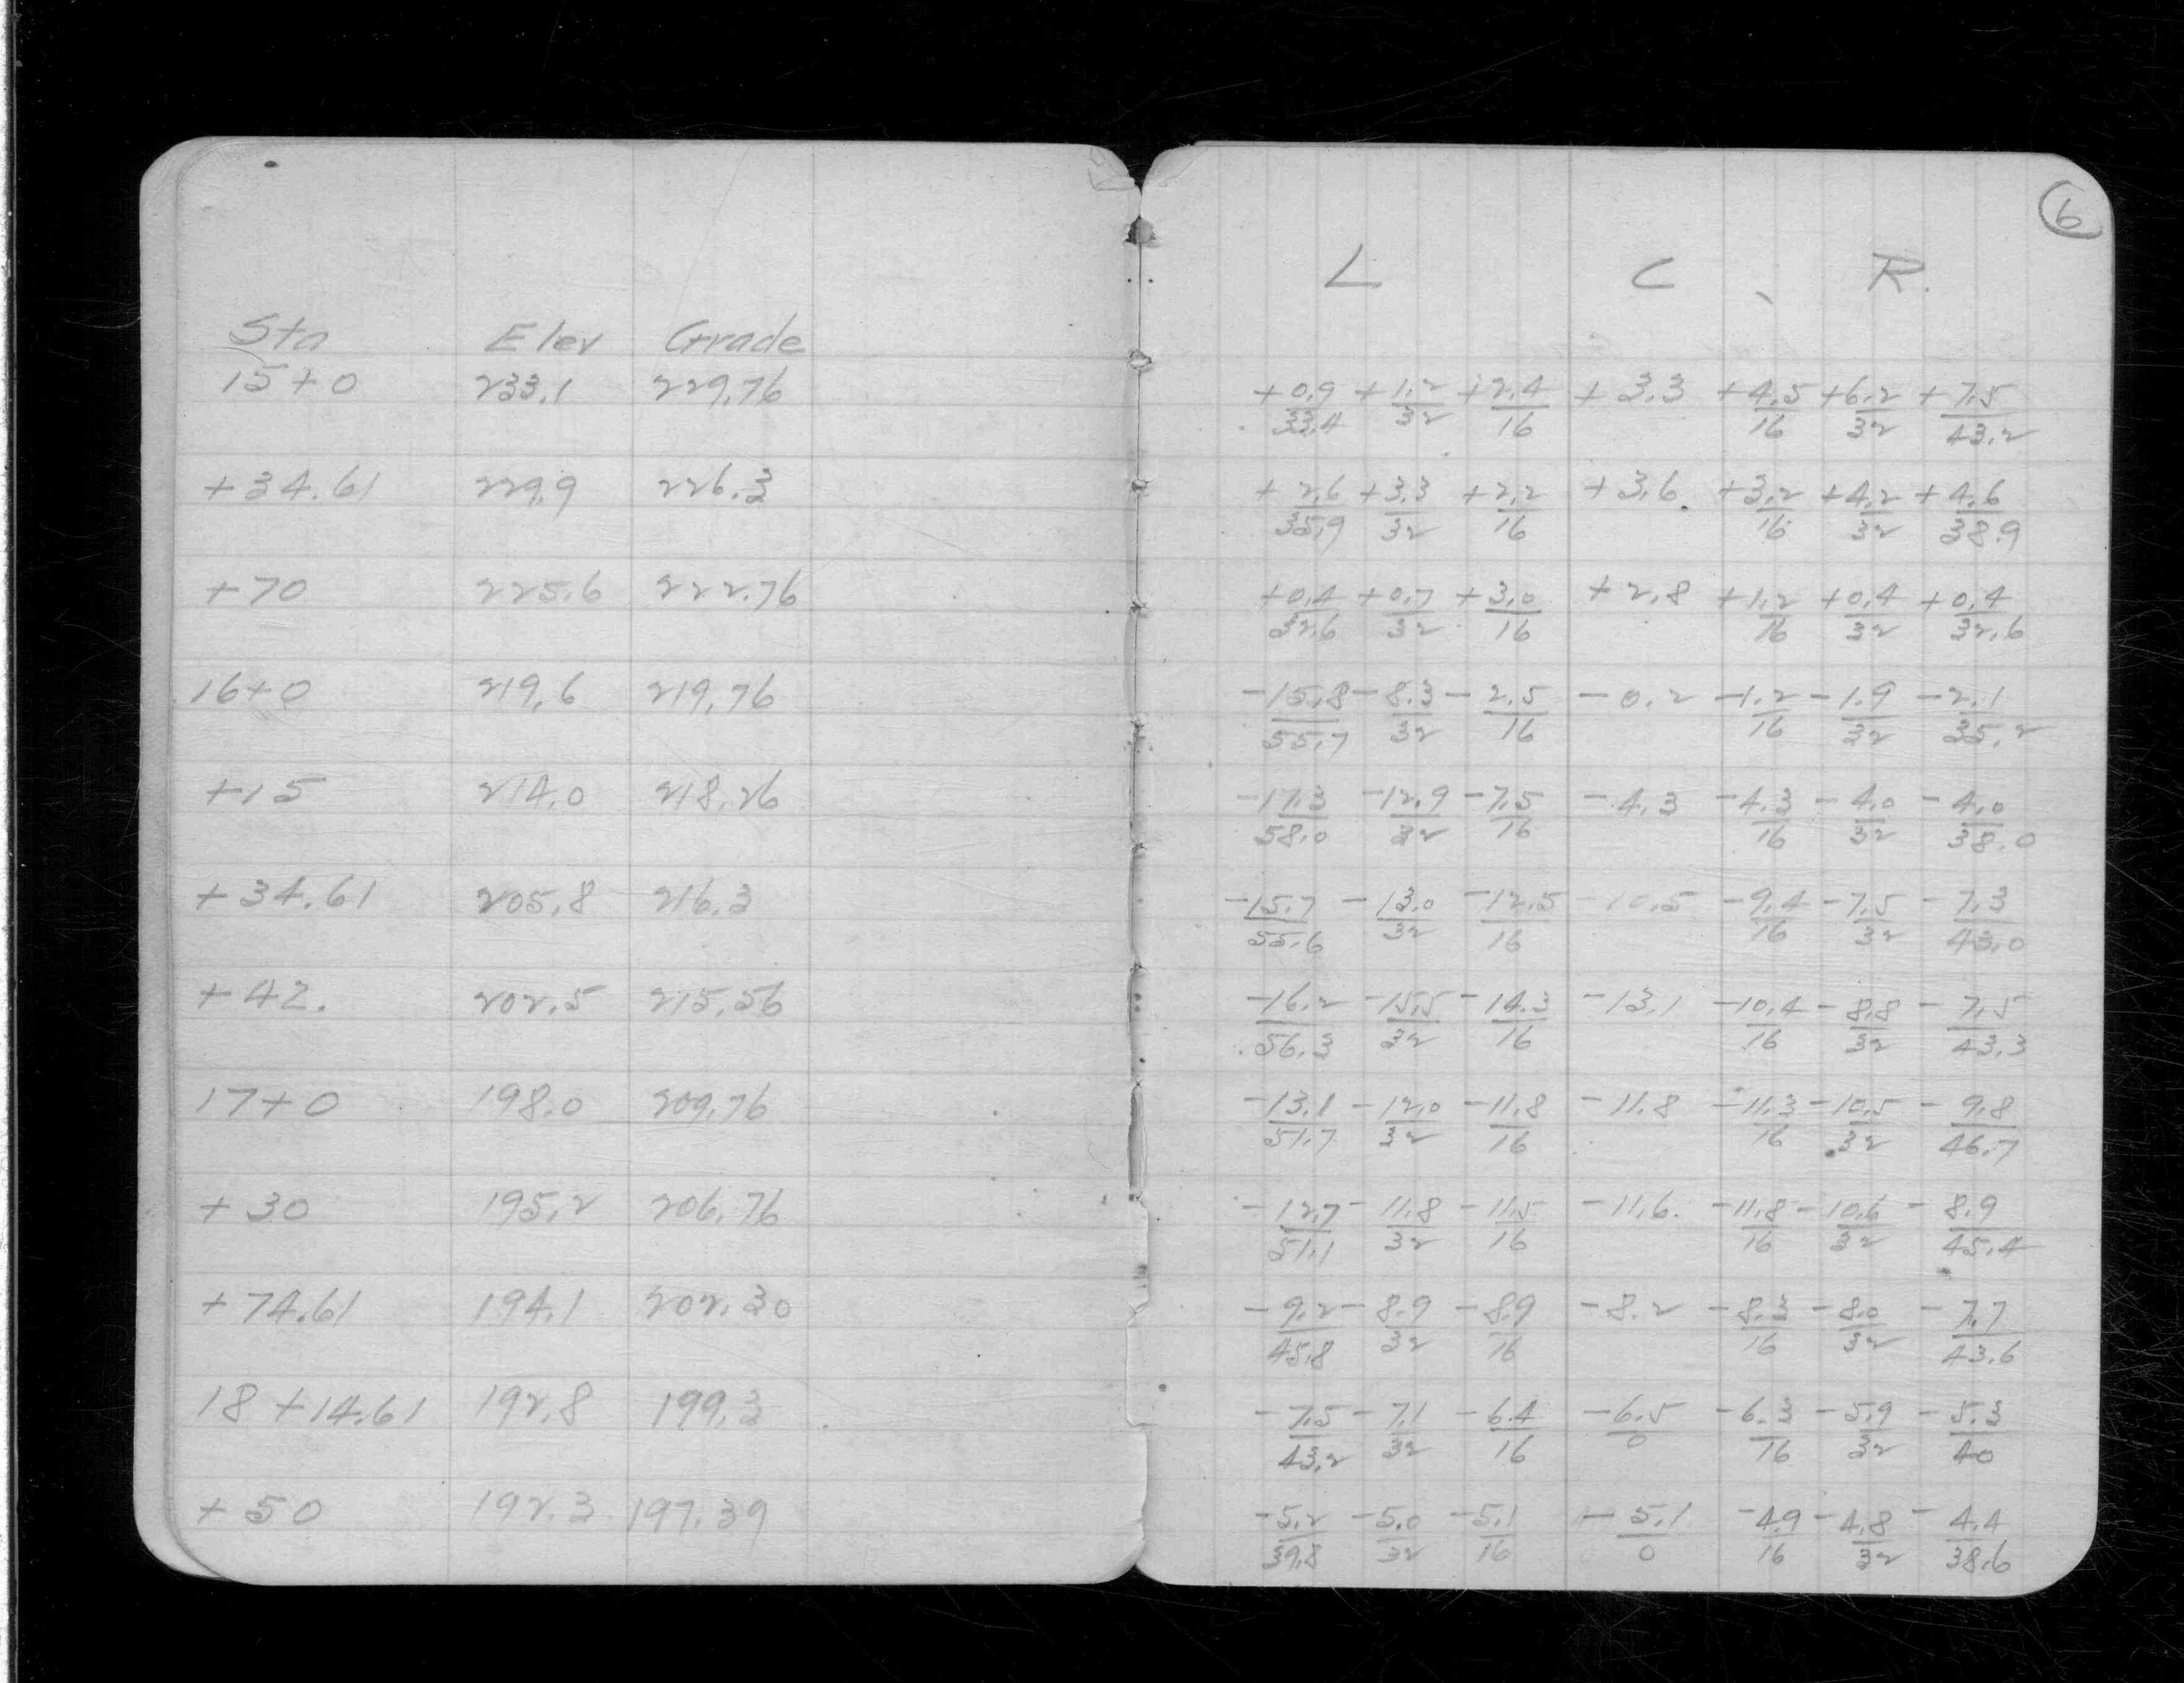 6
L C R.
Sta Elev Grade
15+0 233.1 229.76 +0.9/33.4 +1.2/32 +2.4/16 +3.3 +4.5/16 +6.2/32 +7.5/43.2
+34.61 229.9 226.3 +2.6/35.9 +3.3/32 +2.2/16 +3.6. +3.2/16 +4.2/32 +4.6/38.9
+70 225.6 222.76 +0.4/32.6 +0.7/32 +3.0/16 +2.8 +1.2/16 +0.4/32 +0.4/32.6
16+0 219.6 219.76 -15.8/55.7 -8.3/32 -2.5/16 -0.2 -1.2/16 -1.9/32 -2.1/35.2
+15 214.0 218.26 -17.3/58.0 -12.9/32 -7.5/16 -4.3 -4.3/16 -4.0/32 -4.0/38.0
+34.61 205.8 216.3 -15.7/55.6 -13.0/32 -12.5/16 -10.5 -9.4/16 -7.5/32 -7.3/43.0
+42. 202.5 215.56 -16.2/56.3 -15.5/32 -14.3/16 -13.1 -10.4/16 -8.8/32 -7.5/43.3
17+0 198.0 209.76 -13.1/51.7 -12.0/32 -11.8/16 -11.8 -11.3/16 -10.5/32 -9.8/46.7
+30 195.2 206.76 -12.7/51.1 -11.8/32 -11.5/16 -11.6. -11.8/16 -10.6/32 -8.9/45.4
+74.61 194.1 202.30 -9.2/45.8 -8.9/32 -8.9/16 -8.2 -8.3/16 -8.0/32 -7.7/43.6
18+14.61 192.8 199.3 -7.5/43.2 -7.1/32 -6.4/16 -6.5/0 -6.3/16 -5.9/32 -5.3/40
+50 192.3 197.39 -5.2/39.8 -5.0/32 -5.1/16 -5.1/0 -4.9/16 -4.8/32 -4.4/38.6